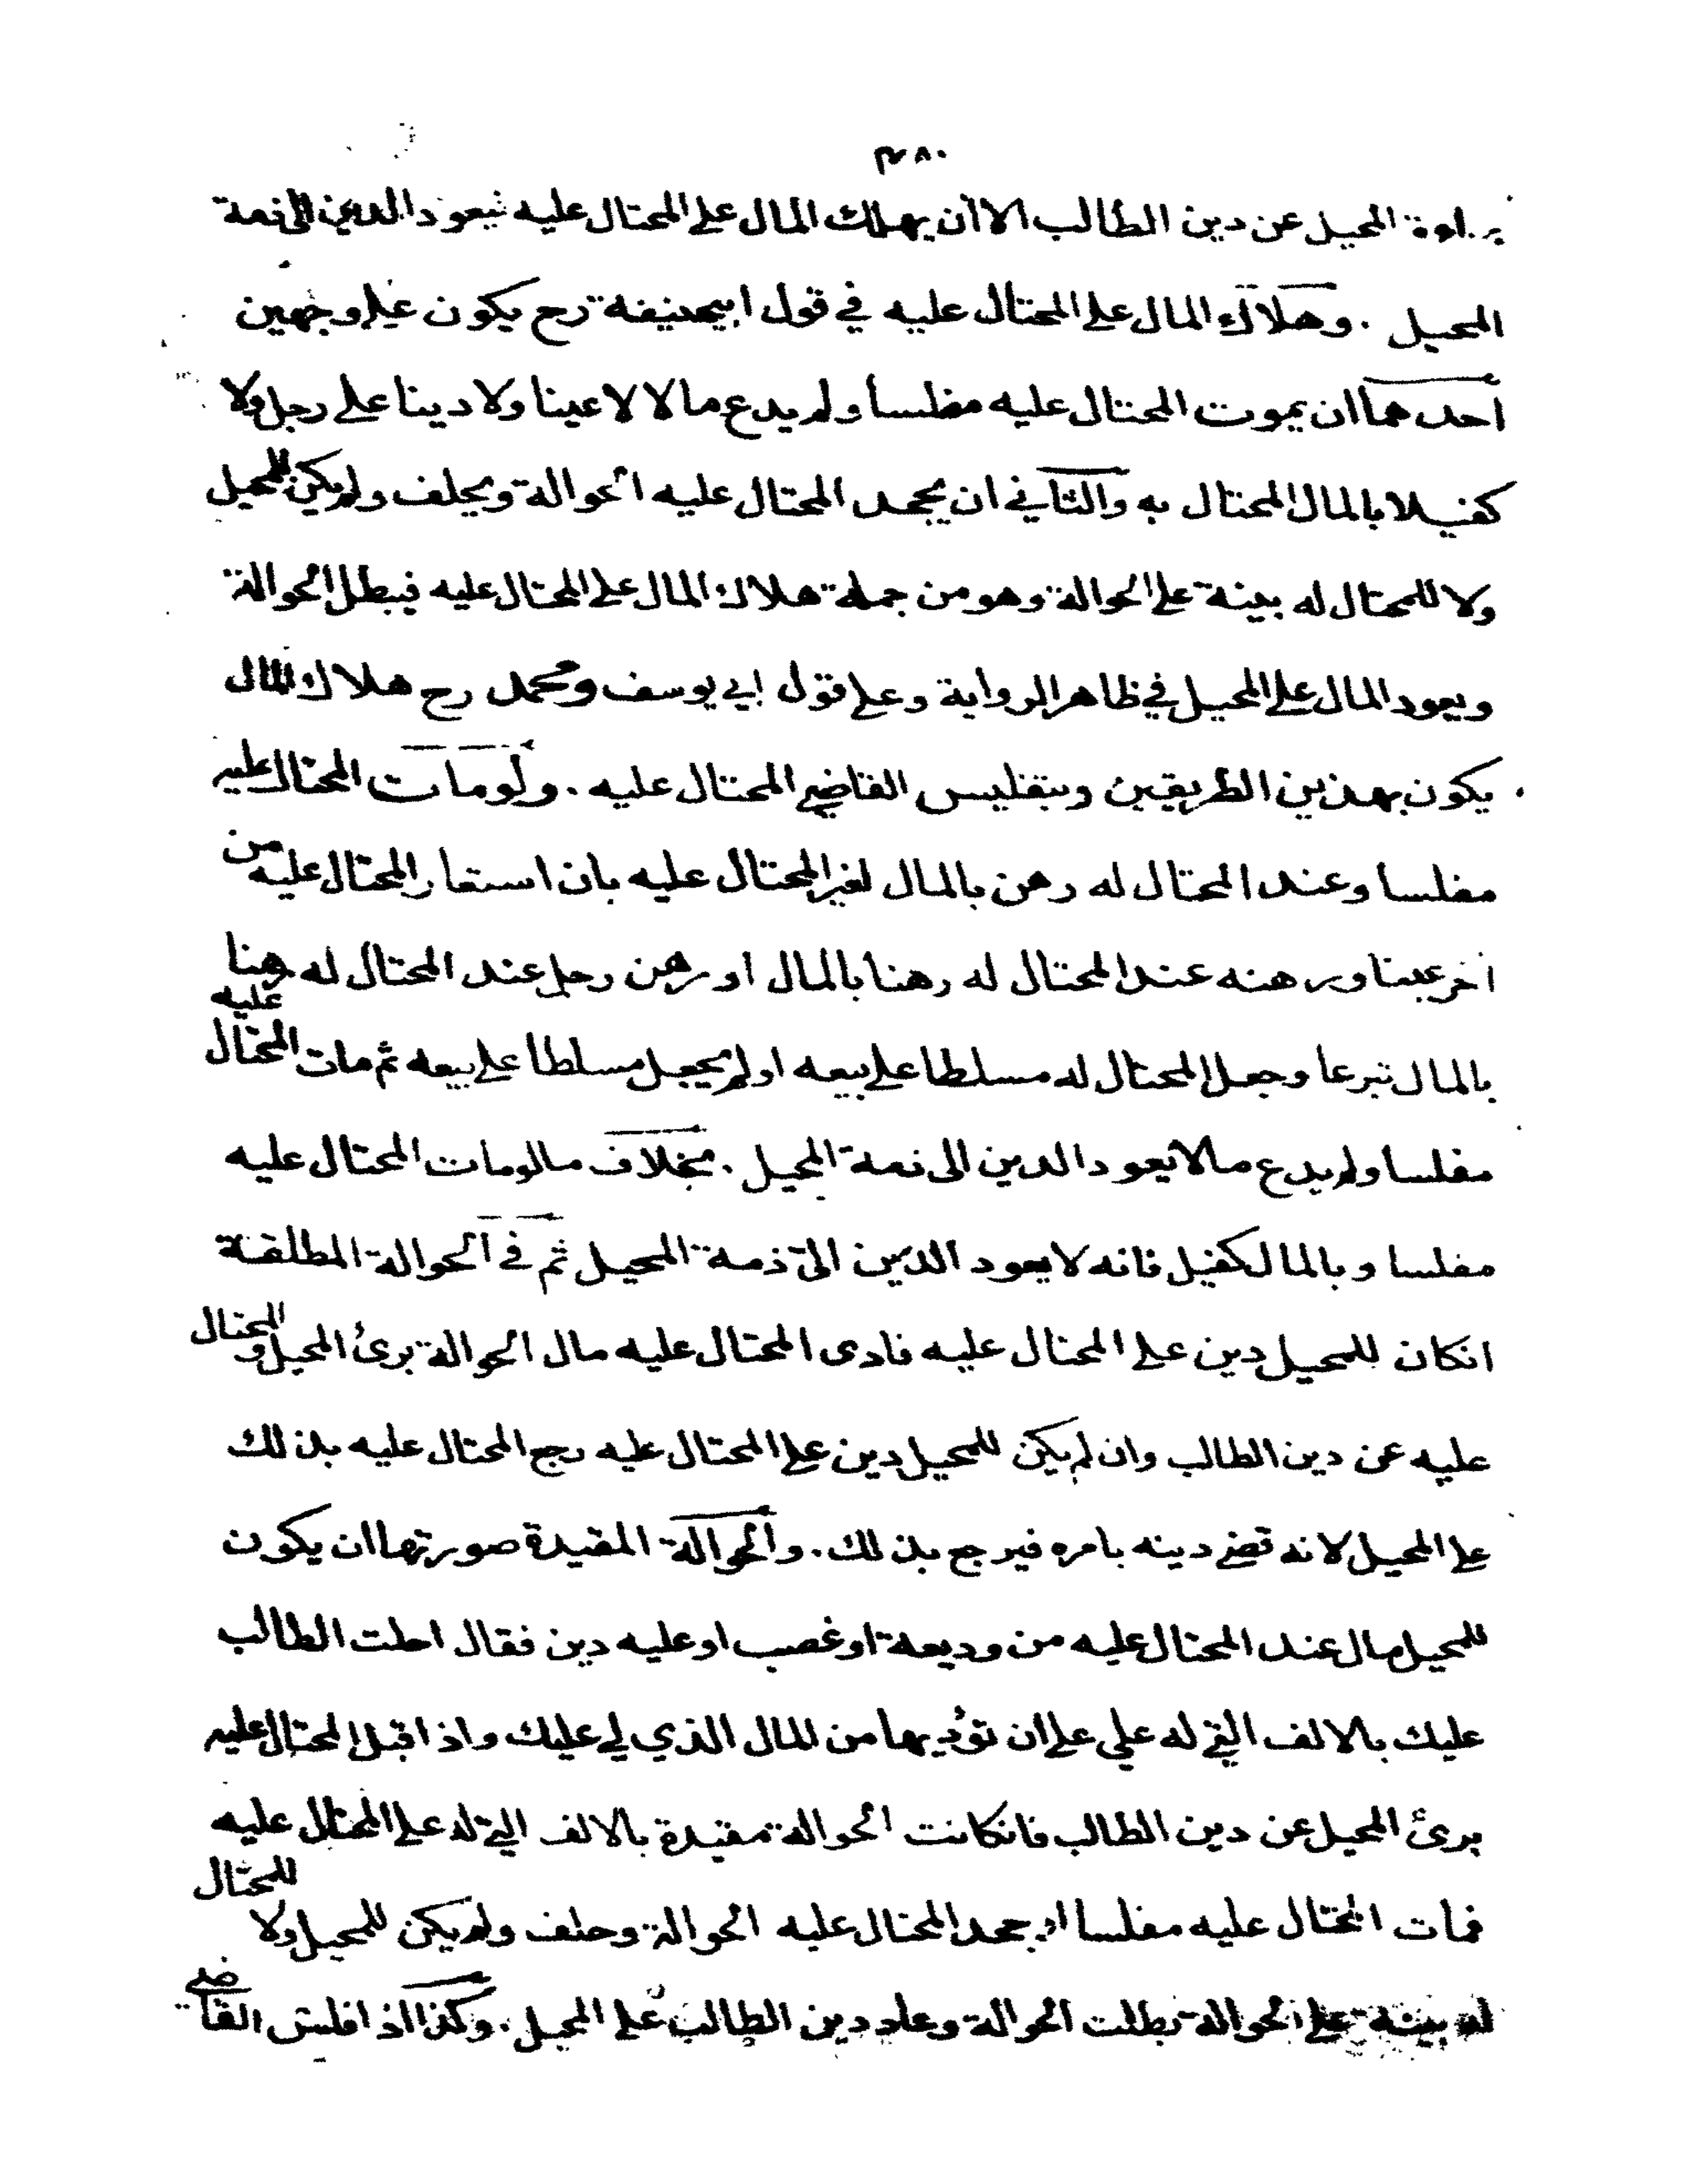 ٤٨٠
براءة المحيل عن دين الطالب الا ان يهلك المال على المحتال عليه فيعود الدين الى ذمة
المحيل . وهلاك المال على المحتال عليه في قول ابيحنيفة رح يكون على وجهين
احدهما ان يموت المحتال عليه مفلسا ولم يدع مالا لا عينا ولا دينا على رجل ولا
كفيلا بالمال المحتال به والثاني ان يجحد المحتال عليه الحوالة ويحلف ولم يكن للمحيل
ولا للمحتال له بينة على الحوالة وهو من جملة هلاك المال على المحتال عليه فيبطل الحوالة
ويعود المال على المحيل في ظاهر الرواية وعلى قول ابي يوسف ومحمد رح هلاك المال
يكون بهذين الطريقين وبتفليس القاضي المحتال عليه . ولو مات المحتال عليه
مفلسا وعند المحتال له رهن بالمال لغير المحتال عليه بان استعار المحتال عليه من
اخر عينا ورهنه عند المحتال له رهنا بالمال او رهن رجل عند المحتال له رهنا
بالمال تبرعا وجعل المحتال له مسلطا على بيعه او لم يجعل مسلطا على بيعه ثم مات المحتال عليه
مفلسا ولم يدع مالا يعود الدين الى ذمة المحيل . بخلاف مالو مات المحتال عليه
مفلسا وبالمال كفيل فانه لا يعود الدين الى ذمة المحيل ثم في الحوالة المطلقة
انكان للمحيل دين على المحتال عليه فادى المحتال عليه مال الحوالة برئ المحيل والمحتال
عليه عن دين الطالب وان لم يكن للمحيل دين على المحتال عليه رجع المحتال عليه بذلك
على المحيل لانه قضى دينه بامره فيرجع بذلك . والحوالة المقيدة صورتها ان يكون
للمحيل مال عند المحتال عليه من وديعة او غصب او عليه دين فقال احلت الطالب
عليك بالالف التي له علي على ان تؤديها من المال الذي لي عليك واذا قبل المحتال عليه
برئ المحيل عن دين الطالب فانكانت الحوالة مقيدة بالالف التي له على المحتال عليه
فمات المحتال عليه مفلسا او جحد المحتال عليه الحوالة وحلف ولم يكن للمحيل ولا للمحتال
له بينة على الحوالة بطلت الحوالة وعاد دين الطالب على المحيل . وكذا اذا فلس القاضي